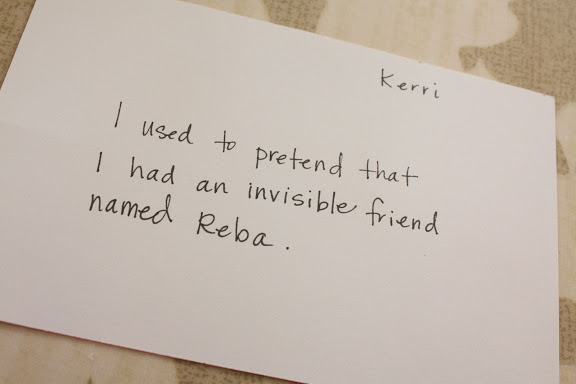 Kerri
I used to pretend that
I had an invisible friend
named Reba.